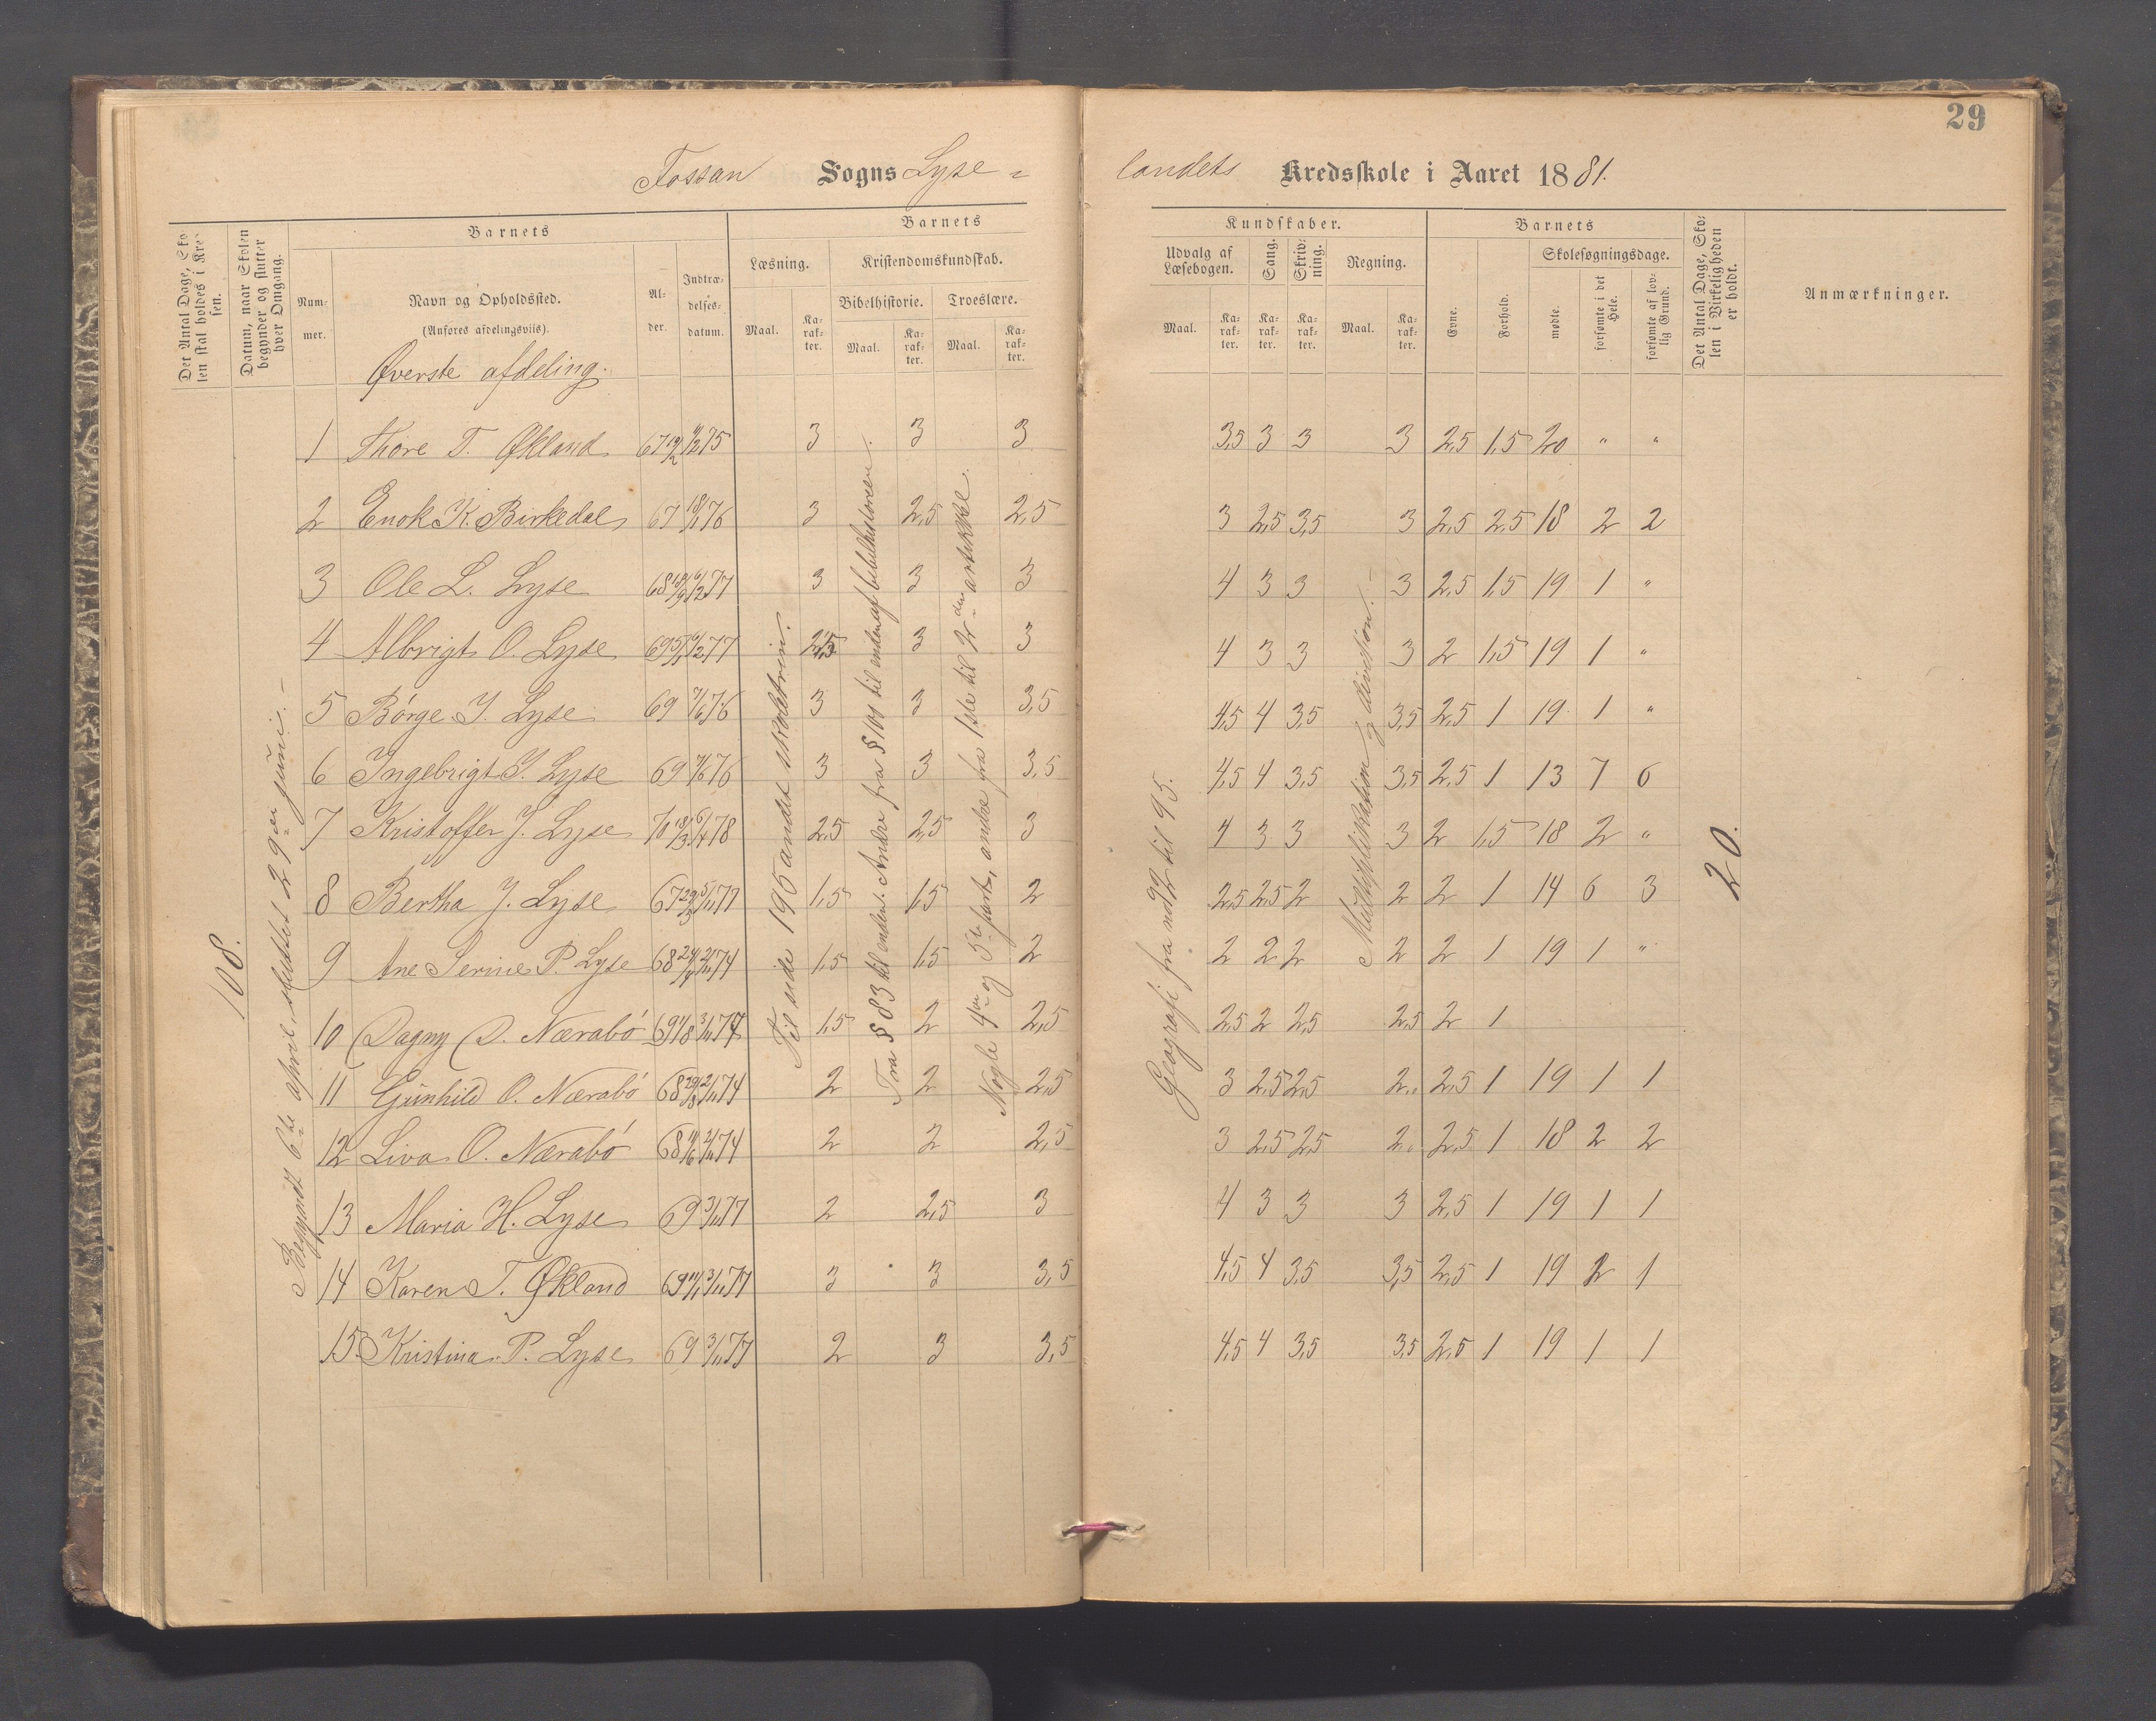 29
Fossan Sogns Lyse-
landets Kredsskole i Aaret 1881.
Det Antal Dage, Skolen skal holdes i Kredsen.
Datum, naar Skolen begynder og slutter hver Omgang.
Barnets
Nummer.
Navn og Opholdssted.
(Anføres afdelingsvis).
Alder.
Indtrædelsesdatum.
Barnets
Læsning.
Kristendomskundskab.
Bibelhistorie.
Troeslære.
Maal.
Karakter.
Maal.
Karakter.
Maal.
Karakter.
Kundskaber.
Udvalg af Læsebogen.
Sang.
Skrivning.
Regning.
Maal.
Karakter.
Karakter.
Karakter.
Maal.
Karakter.
Barnets
Evne.
Forhold.
Skolesøgningsdage.
mødte.
forsømte i det Hele.
forsømte af lovlig Grund.
Det Antal Dage, Skolen i Virkeligheden er holdt.
Anmærkninger.
Øverste afdeling.
108.
Begyndt 6te april, sluttet 29de juni. –
Til side 195 andet skoletrin.
Fra § 83 til enden. Andre fra § 101 til enden af bibelhistorien.
Nogle 4de og 5te part, andre fra 1ste til 2den artikkel.
Geografi fra no 92 til 95.
Multiplikation og division. –
20.
1 Thore T. Økland 67 3 3 3 3,5 3 3 3 2,5 1,5 20 " "
2 Enok K. Birkedal 67 18/1 76 3 2,5 2,5 3 2,5 3,5 3 2,5 2,5 18 2 2
3 Ole L. Lyse 68 6/2 77 3 3 3 4 3 3 3 2,5 1,5 19 1 "
4 Albrigt O. Lyse 69 6/2 77 2,5 3 3 4 3 3 3 2 1,5 19 1 "
5 Børge J. Lyse 69 7/6 76 3 3 3,5 4,5 4 3,5 3,5 2,5 1 19 1 "
6 Ingebrigt J. Lyse 69 7/6 76 3 3 3,5 4,5 4 3,5 3,5 2,5 1 13 7 6
7 Kristoffer J. Lyse 70 18/3 6/4 78 2,5 2,5 3 4 3 3 3 2 1,5 18 2 "
8 Bertha J. Lyse 67 5/11 77 1,5 1,5 2 2,5 2,5 2 2 2 1 14 6 3
9 Ane Serine P. Lyse 68 2/11 74 1,5 1,5 2 2 2 2 2 2 1 19 1 "
10 Dagny D. Nærabø 69 1/8 3/11 77 1,5 2 2,5 2,5 2 2,5 2,5 2 1
11 Gunhild O. Nærabø 68 29/8 2/11 74 2 2 2,5 3 2,5 2,5 2,, 2,5 1 19 1 1
12 Liva O. Nærabø 68 2/11 74 2 2 2,5 3 2,5 2,5 2,, 2,5 1 18 2 2
13 Maria H. Lyse 69 3/11 77 2 2,5 3 4 3 3 3 2,5 1 19 1 1
14 Karen T. Økland 69 3/11 77 3 3 3,5 4,5 4 3,5 3,5 2,5 1 19 1
15 Kristina P. Lyse 69 3/11 77 2 3 3,5 4,5 4 3,5 3,5 2,5 1 19 1 1